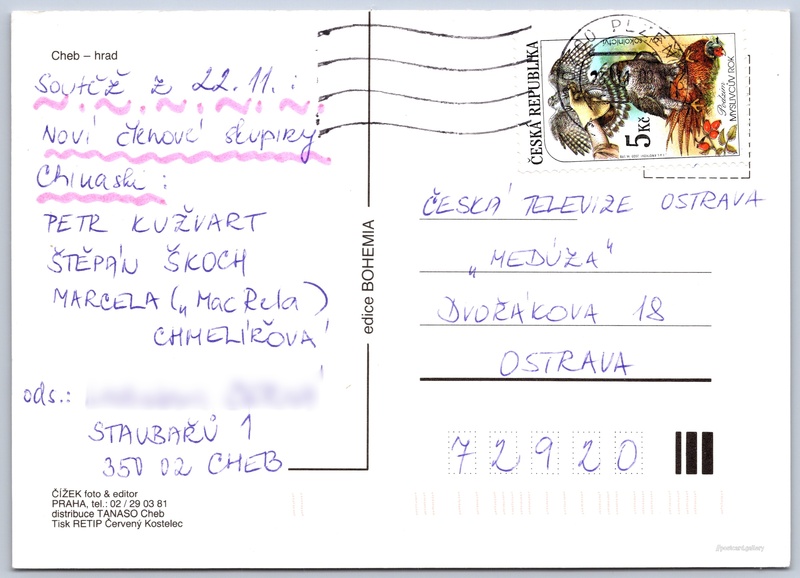 Cheb – hrad
Soutěž z 22.11.:
Noví členové skupiny
Chinaski:
PETR KUŽVART
ŠTĚPÁN ŠKOCH
MARCELA („MacRela)
CHMELÍŘOVÁ
ods.:
STAVBAŘŮ 1
350 02 CHEB
ČÍŽEK foto & editor
PRAHA, tel.: 02 / 29 03 81
distribuce TANASO Cheb
Tisk RETIP Červený Kostelec
edice BOHEMIA
ČESKÁ REPUBLIKA
5 Kč
sokolnictví
Podzim
MYSLIVCŮV ROK
ČESKÁ TELEVIZE OSTRAVA
„MEDÚZA"
DVOŘÁKOVA 18
OSTRAVA
72920
//postcard.gallery